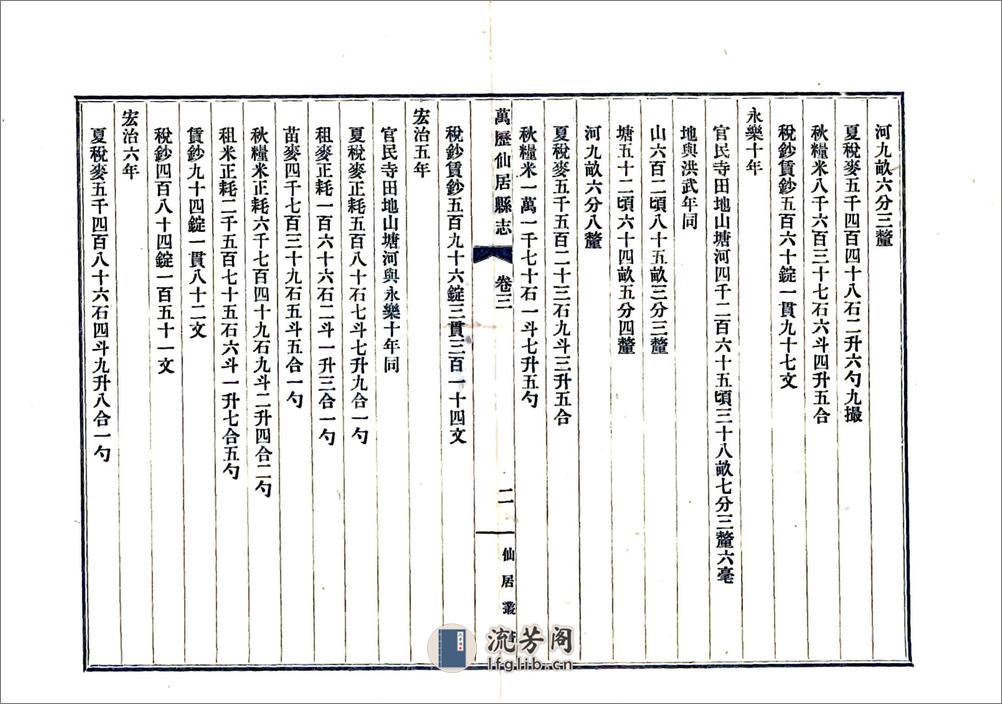 河九畝六分三釐
夏稅麥五千四百四十八石二升六勺九撮
秋糧米八千六百三十七石六斗四升五合
稅鈔賃鈔五百六十錠一貫九十七文
永樂十年
官民寺田地山塘河四千二百六十五頃三十八畝七分三釐六毫
地與洪武年同
山六百二頃八十五畝三分三釐
塘五十二頃六十四畝五分四釐
河九畝六分八釐
夏稅麥五千五百二十三石九斗三升五合
秋糧米一萬一千七十石一斗七升五勺
萬歷仙居縣志 卷三 二 仙居叢書
稅鈔賃鈔五百九十六錠三貫三百一十四文
宏治五年
官民寺田地山塘河與永樂十年同
夏稅麥正耗五百八十石七斗七升九合一勺
租麥正耗一百六十六石二斗一升三合一勺
苗麥四千七百三十九石五斗五合一勺
秋糧米正耗六千七百四十九石九斗二升四合二勺
租米正耗二千五百七十五石六斗一升七合五勺
賃鈔九十四錠一貫八十二文
稅鈔四百八十四錠一百五十一文
宏治六年
夏稅麥五千四百八十六石四斗九升八合一勺
流芳阁
lfglib.cn